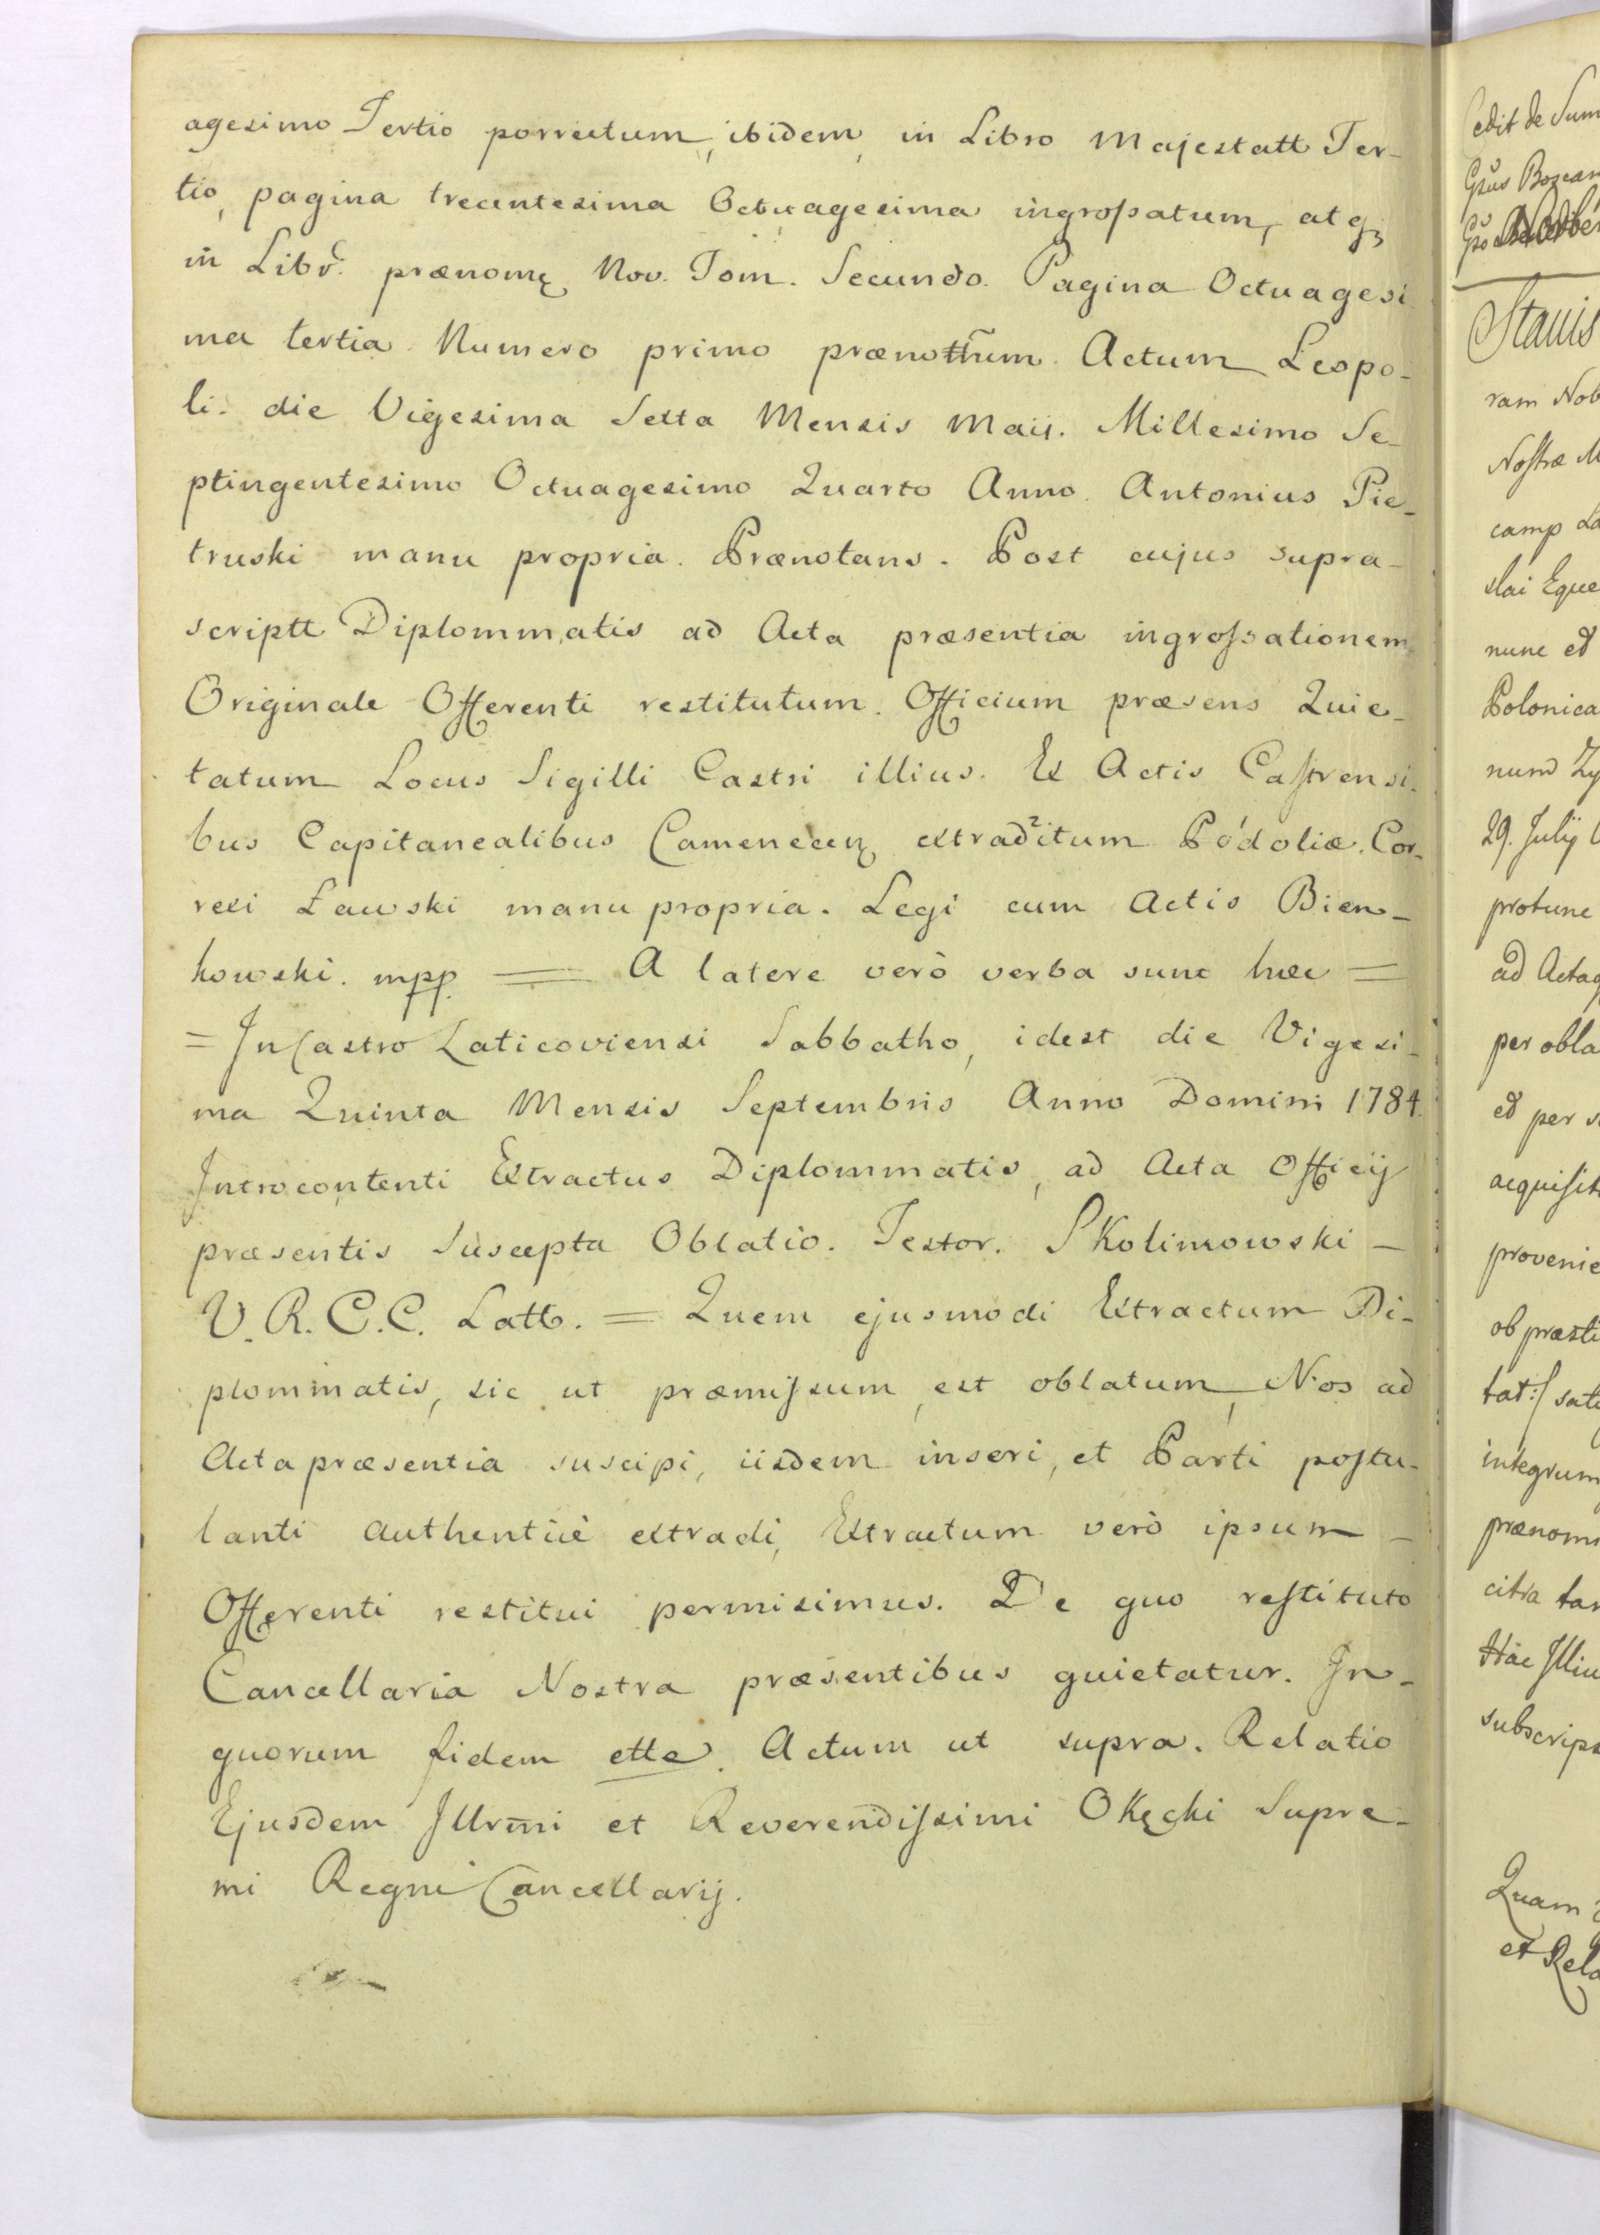 agesimo Tertio porrectum, ibidem, in Libro Majestatt Ter-
tio, pagina trecentesima Octuagesima ingrossatum, atq
in Libr. prænomę Nov. Tom. Secundo. Pagina Octuagesi-
ma tertia Numero primo prænottum. Actum Leopo-
li. die Vigesima Sexta Mensis Maii. Millesimo Se-
ptingentesimo Octuagesimo Quarto Anno. Antonius Pie-
truski manu propria. Prænotans. Post cujus supra-
scriptt Diplommatis ad Acta præsentia ingrossationem
Originale Offerenti restitutum. Officium præsens Quie-
tatum Locus Sigilli Castri illius. Ex Actis Castrensi-
bus Capitanealibus Camenecen extraditum Podoliæ. Cor-
rexi Ławski manu propria. Legi cum Actis Bien-
kowski. mpp. = A latere verò verba sunt hæc =
= In Castro Laticoviensi Sabbatho, idest die Vigesi-
ma Quinta Mensis Septembris Anno Domini 1784.
Introcontenti Extractus Diplommatis, ad Acta Officij
præsentis Suscepta Oblatio. Testor. SKolimowski -
V. R. C. C. Latt. = Quem ejusmodi Extractum Di-
plommatis, sic ut præmissum, est oblatum, Nos ad
Acta præsentia suscipi, iisdem inseri, et Parti postu-
lanti authenticè extradi, Extractum verò ipsum -
Offerenti restitui permisimus. De quo restituto
Cancellaria Nostra præsentibus quietatur. In-
quorum fidem ette. Actum ut supra. Relatio
Ejusdem Illrmi et Reverendissimi Okęcki Supre-
mi Regni Cancellarij.
edit de Sum
Stanis
ram Nob
Nostræ M
camp La
slai Eque
nunc et
Polonica
num Zy
29. Julij
protunc
ad Actaq
per obla
et per s
acquisit
provenie
ob præsti
tat: sati
integrum
prænom
citra tan
Hac Illiu
subscrips
Quam
et Rela